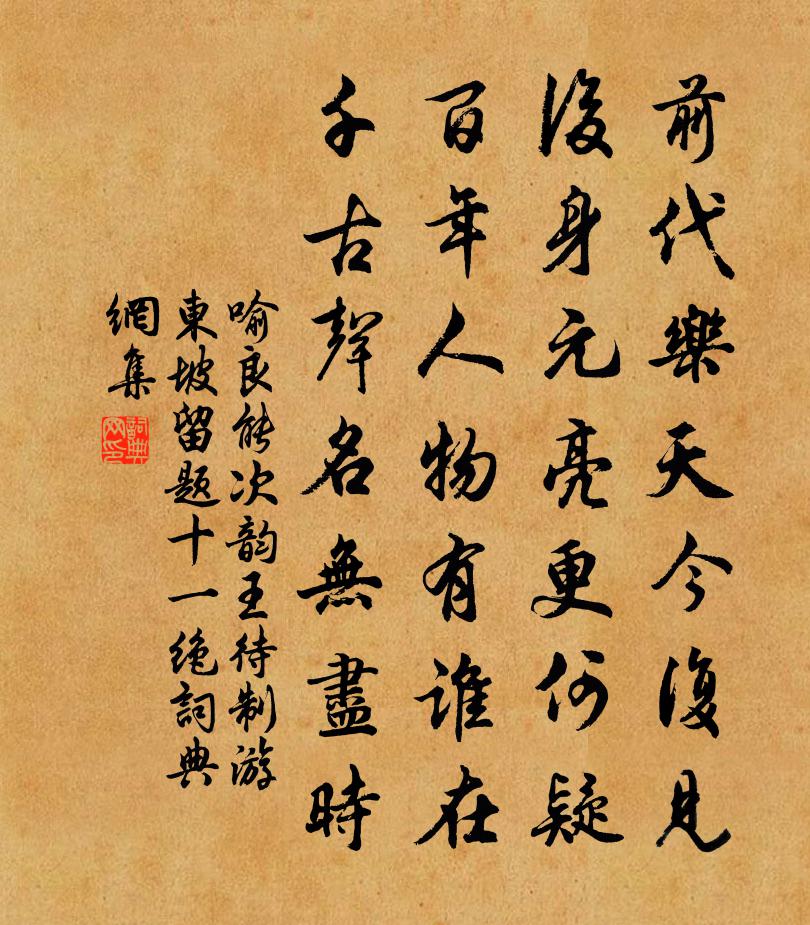 前代樂天今復見
後身元亮更何疑
百年人物有誰在
千古聲名無盡時
喻良能次韵王待制游
東坡留题十一绝詞典
網集
詞典網印